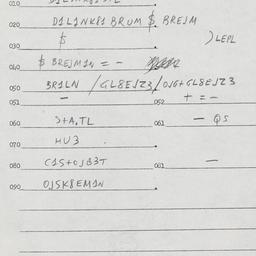 020 D1L1NK81 BRUM $ BREJM
030 $ . ) LEPL
040 $ BREJM1N = -
050 BR1LN / GL8EJZ3 / OJG+GL8EJZ3
051 - 052 + = -
060 3+A.TL 061 - QS
070 HU3 .
080 C1S+OJ83T 061 -
090 OJSK8EM1N